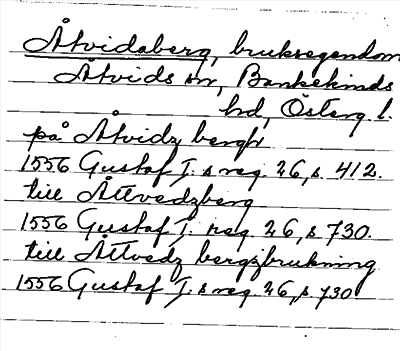 Åtvidaberg, bruksegendom
Åtvids sn, Bankekinds
hd, Österg. l.
på Åtvidz bergh
1556 Gustaf I:s reg. 26, s. 412.
till Åttvedzberg
1556 Gustaf I:s reg. 26, s. 730.
till Åttvedz bergzbrukning
1556 Gustaf I:s reg. 26, s. 730